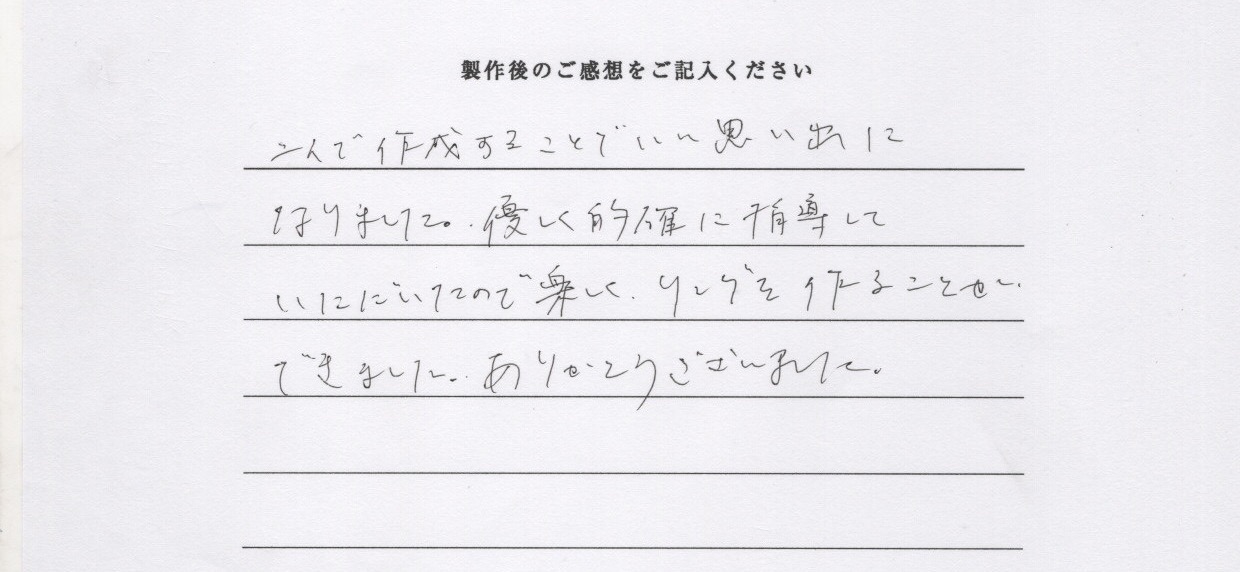 製作後のご感想をご記入ください
二人で作成することでいい思い出に
なりました。優しく的確に指導して
いただいたので楽しく、リングを作ることが
できました。ありがとうございました。